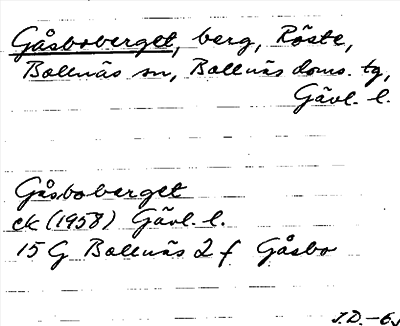 Gåsboberget, berg, Röste,
Bollnäs sn, Bollnäs doms. tg,
Gävl. l.
Gåsboberget
ek (1958) Gävl. l.
15 G Bollnäs 2 f Gåsbo